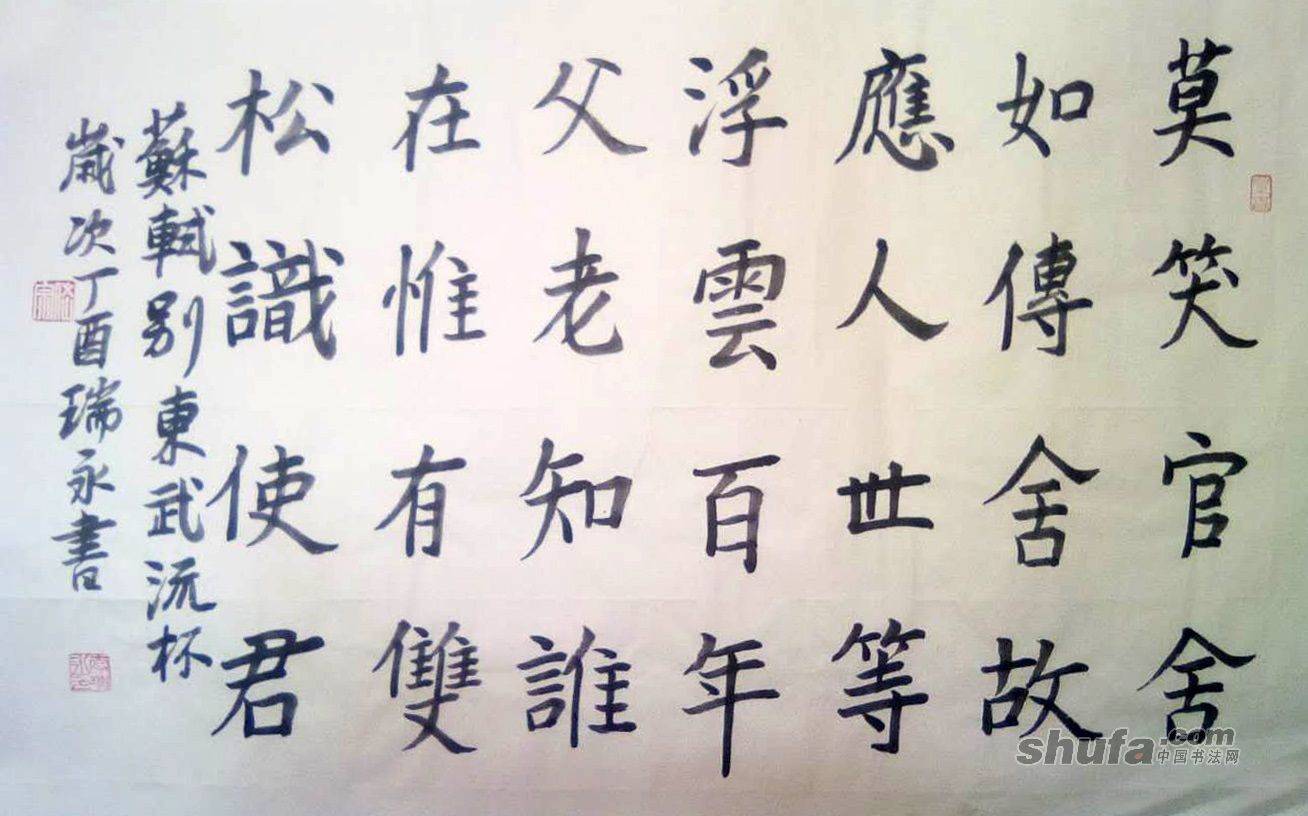 莫笑官舍
如傳舍故
應人世等
浮雲百年
父老知誰
在惟有雙
松識使君
蘇軾别東武流杯
歲次丁酉瑞永書
shufa.com
中国书法网